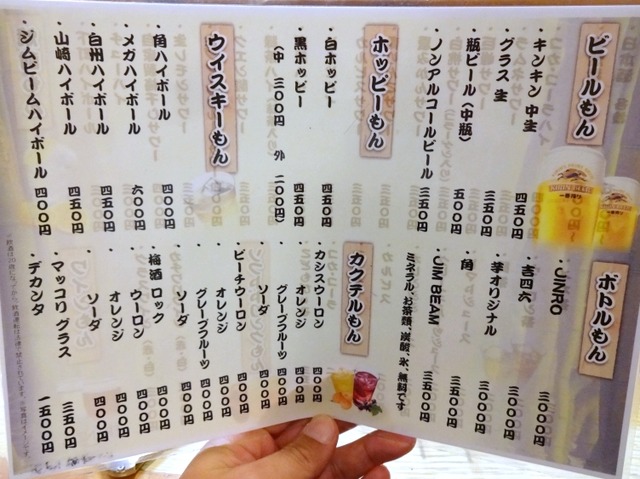 ビールもん
・キンキン 中生 四五〇円
・グラス 生 三五〇円
・瓶ビール(中瓶) 五〇〇円
・ノンアルコールビール 三五〇円
ホッピーもん
・白ホッピー 四五〇円
・黒ホッピー 四五〇円
(中 三〇〇円 外 二〇〇円)
ウイスキーもん
・角ハイボール 四〇〇円
・メガハイボール 六〇〇円
・白州ハイボール 四五〇円
・山崎ハイボール 四五〇円
・ジムビームハイボール 四〇〇円
ボトルもん
・JINRO 三〇〇〇円
・吉四六 三〇〇〇円
・芋オリジナル 三〇〇〇円
・角 三五〇〇円
・JIM BEAM 三五〇〇円
ミネラル、お茶類、炭酸、氷、無料です
カクテルもん
・カシスウーロン 四〇〇円
・オレンジ 四〇〇円
・グレープフルーツ 四〇〇円
・ソーダ 四〇〇円
・ピーチウーロン 四〇〇円
・オレンジ 四〇〇円
・グレープフルーツ 四〇〇円
・ソーダ 四〇〇円
・梅酒 ロック 四〇〇円
・ウーロン 四〇〇円
・オレンジ 四〇〇円
・ソーダ 四〇〇円
・マッコリ グラス 三五〇円
・デカンタ 一五〇〇円